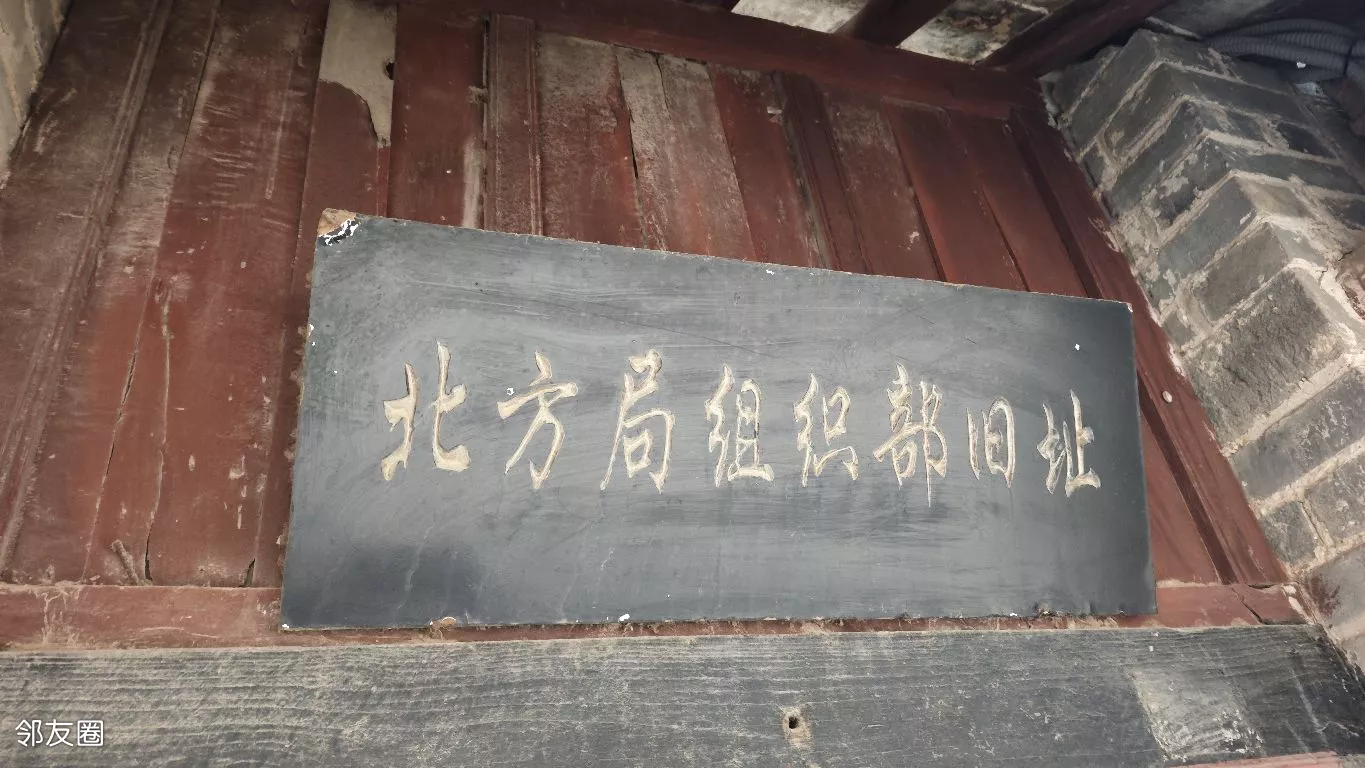 北方局组织部旧址
邻友圈